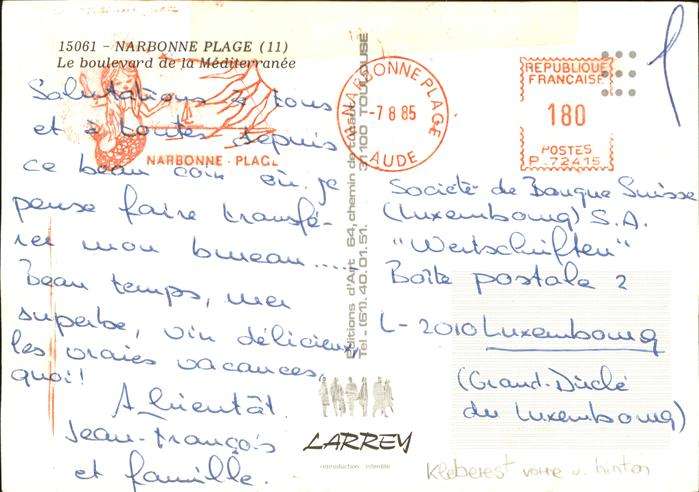 15061 - NARBONNE PLAGE (11)
Le boulevard de la Méditerranée
Salutations à tous
et à toutes depuis
ce beau coin où je
pense faire transfé-
rer mon bureau.....
Beau temps, mer
superbe, vin délicieux,
les vraies vacances,
quoi!
A bientôt.
Jean-François
et famille.
NARBONNE - PLAGE
11 NARBONNE PLAGE
-7 8 85
AUDE
REPUBLIQUE
FRANCAISE
180
POSTES
P.72415
Editions d'Art 64, chemin de 31100 TOULOUSE
Tél.-(61).40.01.51.
LARREY
reproduction interdite
Société de Banque Suisse
(Luxembourg) S.A.
"Wertschriften"
Boîte postale 2
L-2010 Luxembourg
(Grand-Duché
du Luxembourg)